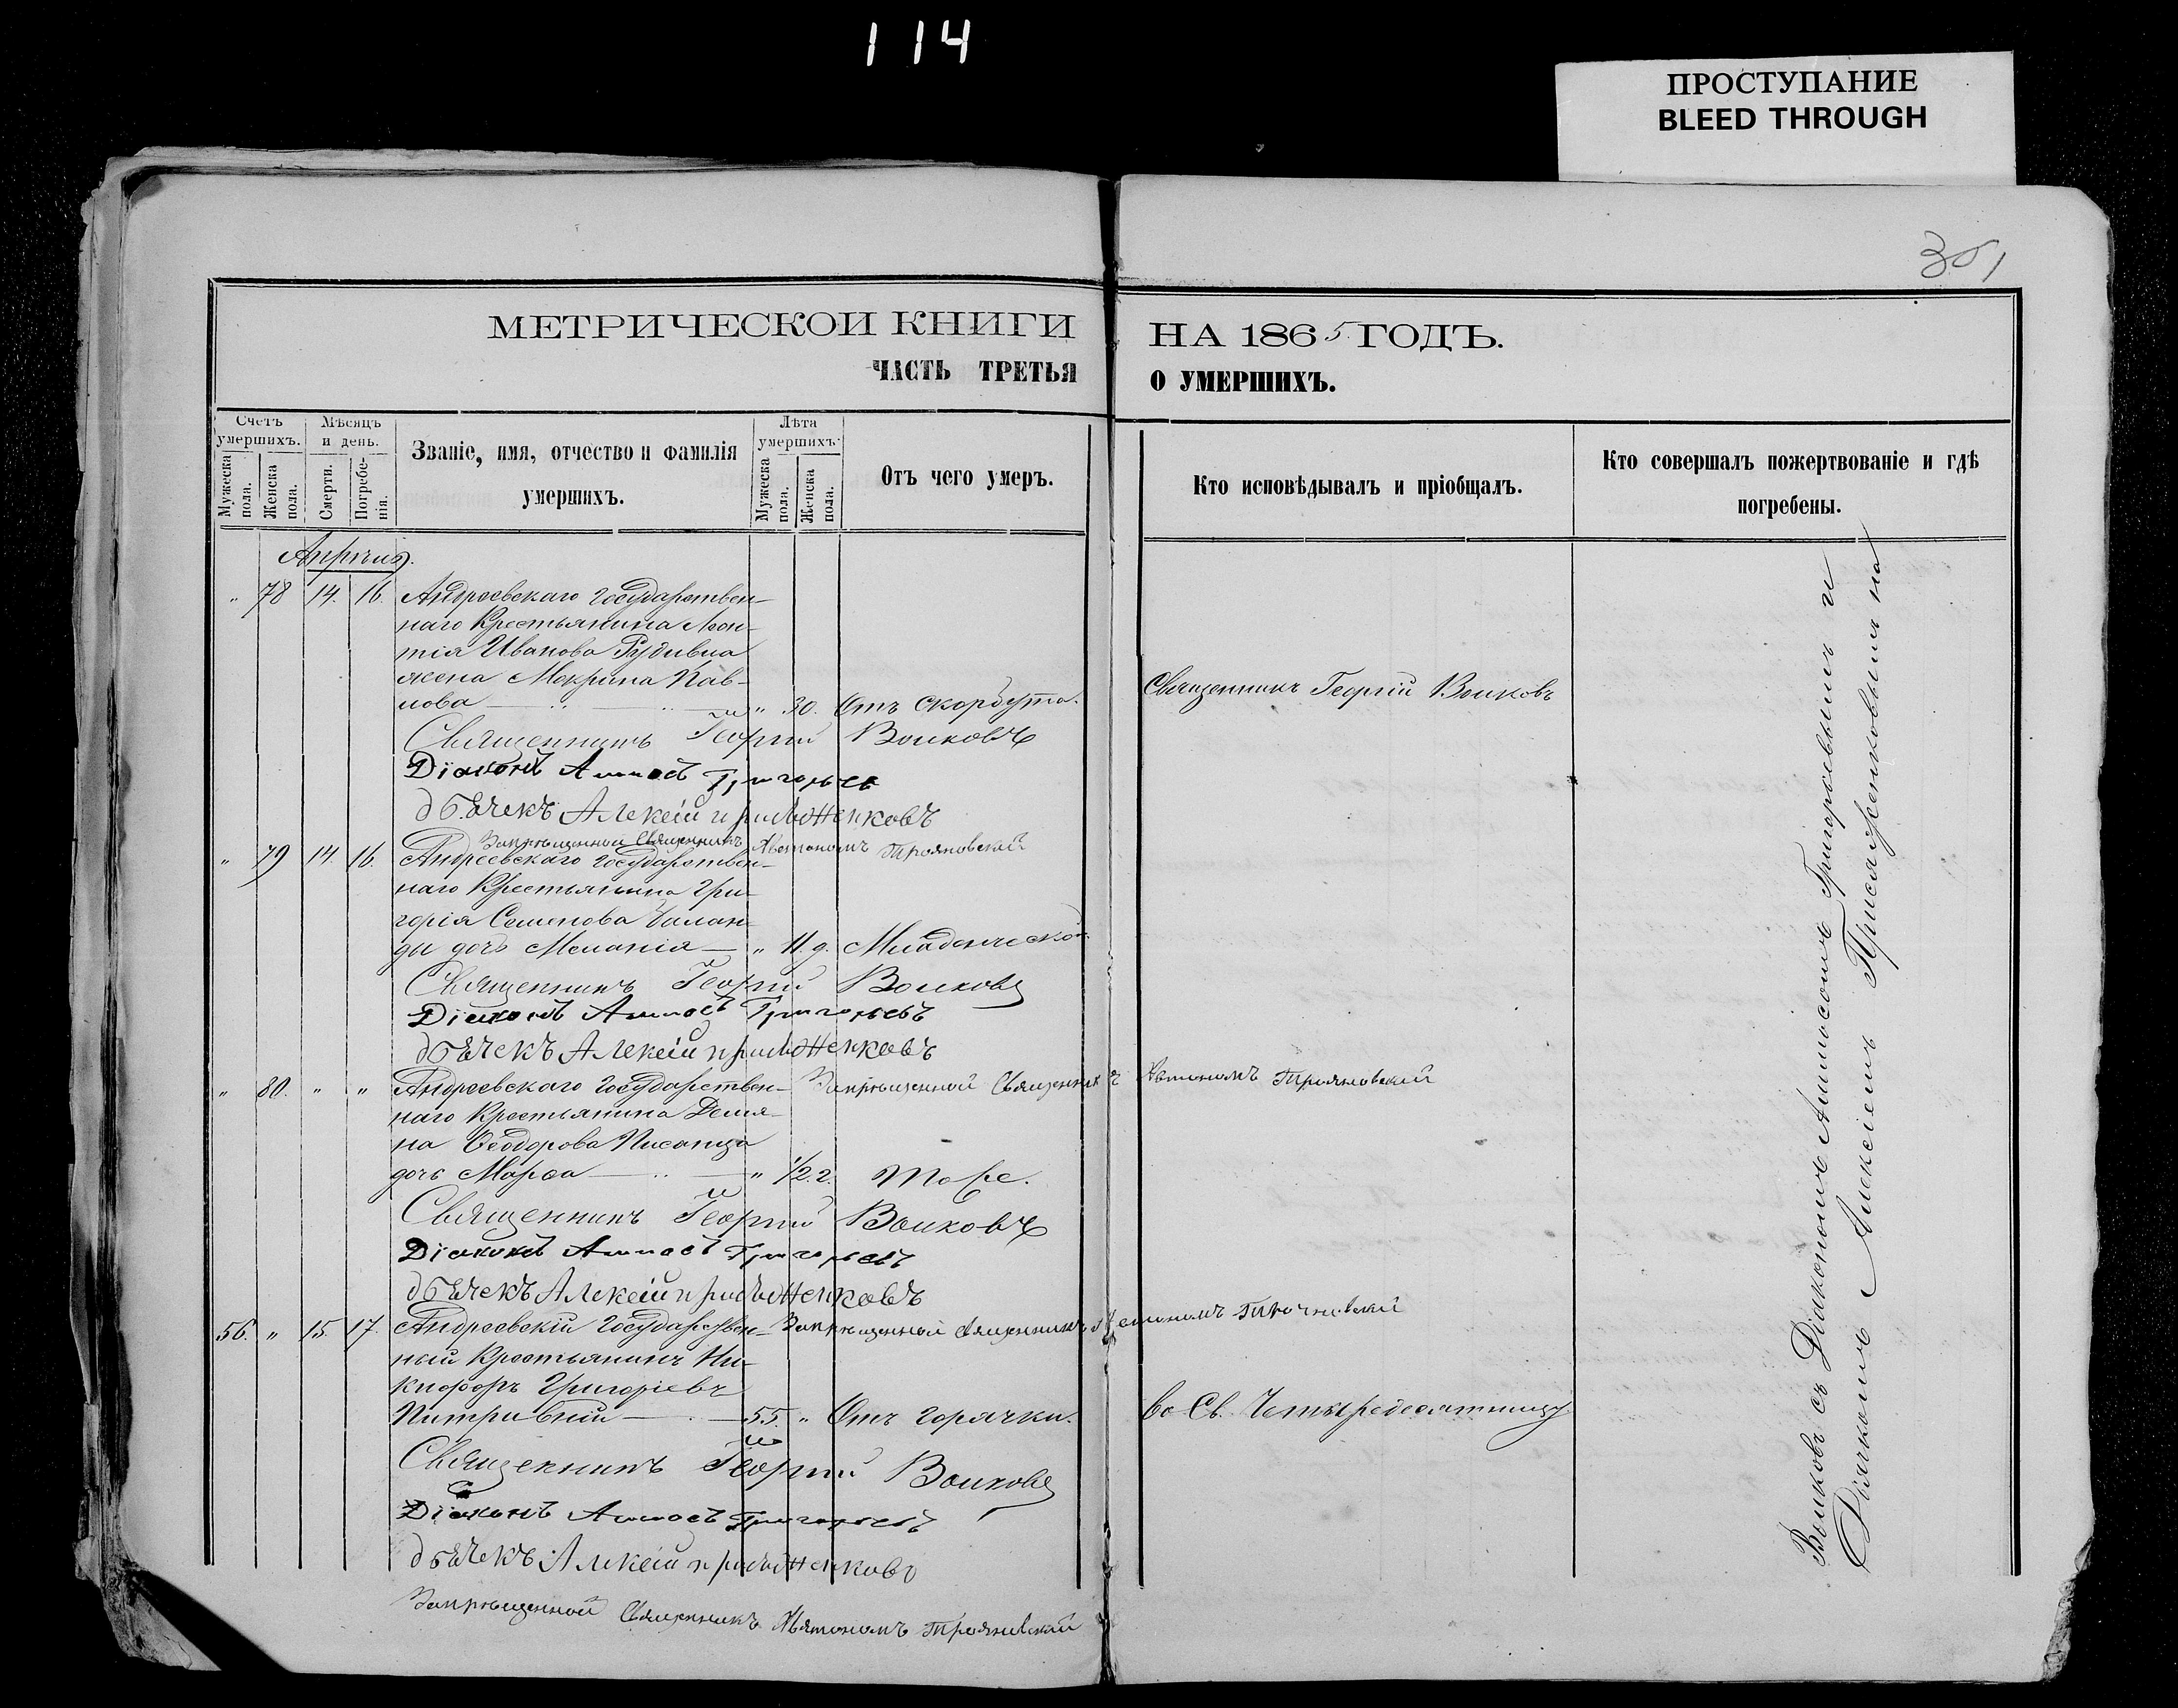 114
ПРОСТУПАНИЕ
BLEED THROUGH
351
МЕТРИЧЕСКОЙ КНИГИ
НА 1865 ГОДЪ.
ЧАСТЬ ТРЕТЬЯ
О УМЕРШИХЪ.
Счетъ умершихъ.
Мужеска пола.
Женска пола.
Мѣсяцъ и день.
Смерти.
Погребенія.
Званіе, имя, отчество и фамилія
умершихъ.
Лѣта умершихъ.
Мужеска пола.
Женска пола.
Отъ чего умеръ.
Кто исповѣдывалъ и пріобщалъ.
Кто совершалъ пожертвованіе и гдѣ
погребены.
Апрѣля.
" 78 14. 16. Андреевскаго Государствен-
наго Крестьянина Леон-
тія Иванова
жена Мокрина Пав-
лова " 30. Отъ скорбута. Священникъ Георгій Волковъ
Священникъ Георгій Волковъ
Діаконъ Аммосъ Григорьев
дьѣчекъ Алекеій присяженковъ
Запрѣщенной Священникъ Автономъ Трояновскій
" 79 14. 16. Андреевскаго Государствен-
наго Крестьянина Гри-
горія Семенова Балан-
ды дочь Меланія " 11. д. Младенческой
Священникъ Георгій Волковъ
Діаконъ Аммосъ Григорьевъ
дьѣчекъ Алекеій присяженковъ
" 80. " " Андреевскаго Государствен- Запрѣщенной Священникъ Автономъ Трояновскій
наго Крестьянина Демя-
на Ѳеодорова Писанца
дочь Марѳа " 1/2. г. Тоже.
Священникъ Георгій Волковъ
Діаконъ Аммосъ Григорьевъ
дьѣчекъ Алекеій присяженковъ
56. " 15. 17. Андреевскій Государствен- Запрѣщенной Священникъ Автономъ Трояновскій
ный Крестьянинъ Ни-
кифоръ Григорьевъ
55. " Отъ горячки. Во Св. Четыредесятницу
Священникъ Георгій Волковъ
Діаконъ Аммосъ Григорьевъ
дьѣчекъ Алекеій присяженковъ
Запрѣщенной Священникъ Автономъ Трояновскій
Волковъ съ Діакономъ Аммосомъ Григорьевымъ и
Дьячкомъ Алексіемъ Присяженковымъ на